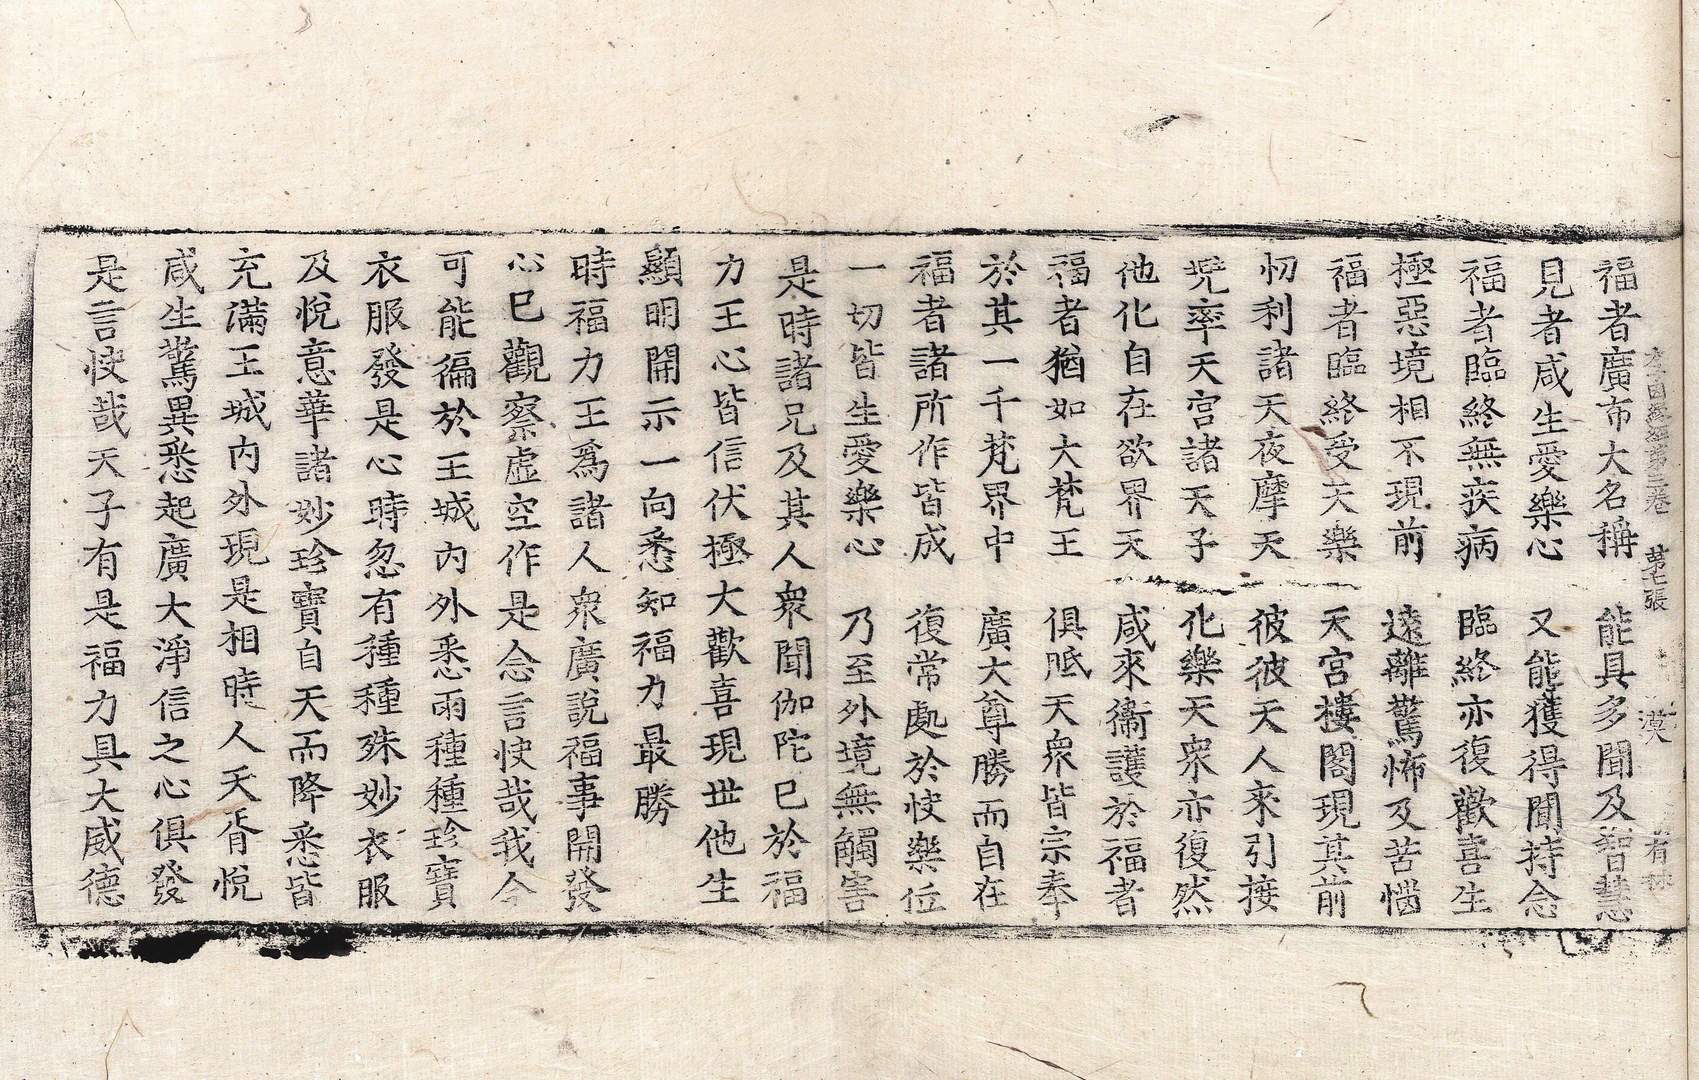 第三卷 第七張 漢
福者廣布大名稱 能具多聞及智慧
見者咸生愛樂心 又能獲得聞持念
福者臨終無疾病 臨終亦復歡喜生
極惡境相不現前 遠離驚怖及苦惱
福者臨終受天樂 天宮樓閣現其前
忉利諸天夜摩天 彼彼天人來引接
兜率天宮諸天子 化樂天衆亦復然
他化自在欲界天 咸來衞護於福者
福者猶如大梵王 俱胝天衆皆宗奉
於其一千梵界中 廣大尊勝而自在
福者諸所作皆成 復常處於快樂位
一切皆生愛樂心 乃至外境無觸害
是時諸兄及其人衆聞伽陀已於福
力王心皆信伏極大歡喜現世他生
顯明開示一向悉知福力最勝
時福力王爲諸人衆廣說福事開發
心已觀察虛空作是念言快哉我今
可能徧於王城內外悉雨種種珍寶
衣服發是心時忽有種種殊妙衣服
及悅意華諸妙珍寶自天而降悉皆
充滿王城內外現是相時人天胥悅
咸生驚異悉起廣大淨信之心俱發
是言快哉天子有是福力具大威德